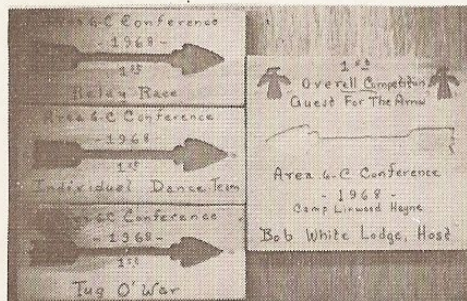 Area 6-C Conference
- 1968 -
1st
Relay Race
Area 6-C Conference
- 1968 -
1st
Individual Dance Team
Area 6-C Conference
- 1968 -
1st
Tug O' War
1st
Overall Competition
Quest For The Arrow
Area 6-C Conference
- 1968 -
Camp Linwood Hayne
Bob White Lodge, Host